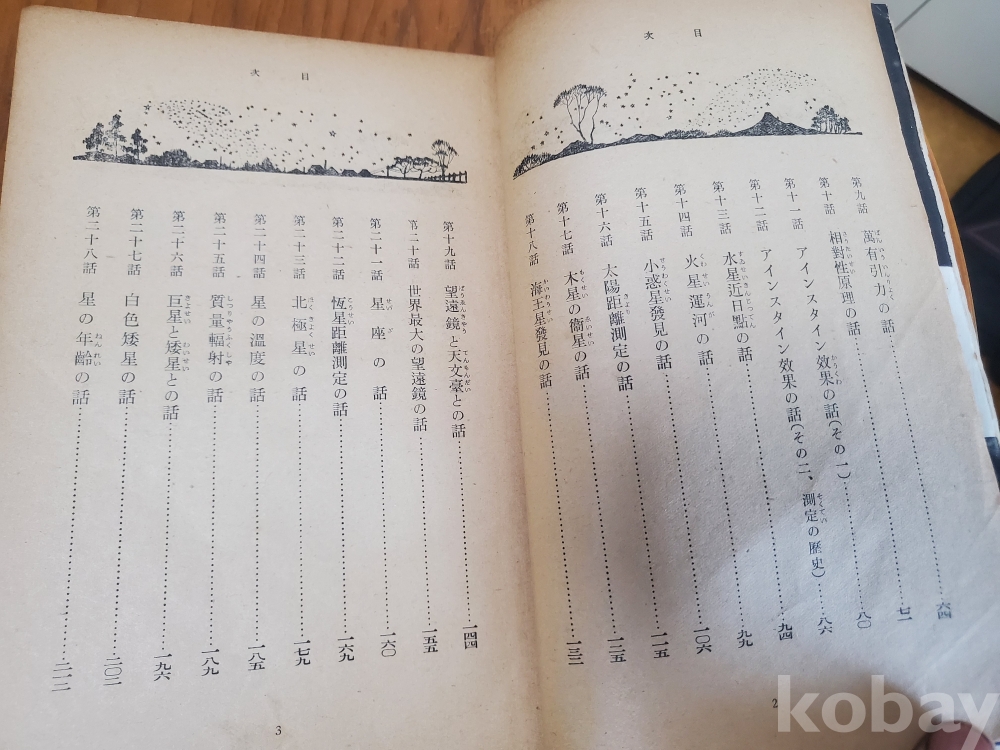 目次
第九話 萬有引力の話 六四
第十話 相對性原理の話 七一
第十一話 アインスタイン效果の話(その一) 八〇
第十二話 アインスタイン效果の話(その二、測定の歷史) 八六
水星近日點の話 九四
第十三話 火星運河の話 九九
第十四話 小惑星發見の話 一〇六
第十五話 太陽距離測定の話 一一五
第十六話 木星の衞星の話 一二五
第十七話 海王星發見の話 一三二
第十八話
2
目次
第十九話 望遠鏡と天文臺との話 一四四
第二十話 世界最大の望遠鏡の話 一五五
第二十一話 星座の話 一六〇
第二十二話 恆星距離測定の話 一六九
第二十三話 北極星の話 一七九
第二十四話 星の溫度の話 一八五
第二十五話 質量輻射の話 一八九
第二十六話 巨星と矮星との話 一九六
第二十七話 白色矮星の話 二〇二
第二十八話 星の年齡の話 二一二
3
kobay